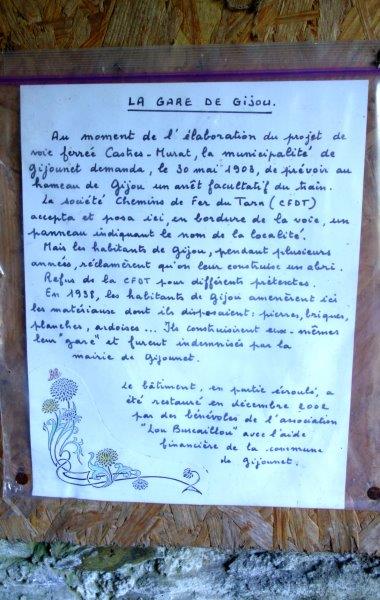 LA GARE DE GIJOU.
Au moment de l'élaboration du projet de
voie ferrée Castres-Murat, la municipalité de
Gijounet demanda, le 30 mai 1903, de prévoir au
hameau de Gijou un arrêt facultatif du train.
La société Chemins de Fer du Tarn (CFDT)
accepta et posa ici, en bordure de la voie, un
panneau indiquant le nom de la localité.
Mais les habitants de Gijou, pendant plusieurs
années, réclamèrent qu'on leur construise un abri.
Refus de la CFDT pour différents prétextes.
En 1938, les habitants de Gijou amenèrent ici
les matériaux dont ils disposaient: pierres, briques,
planches, ardoises ... Ils construisirent eux-mêmes
leur "gare" et furent indemnisés par la
mairie de Gijounet.
Le bâtiment, en partie écroulé, a
été restauré en décembre 2002
par des bénévoles de l'association
"Lou Buscaillou" avec l'aide
financière de la commune
de Gijounet.